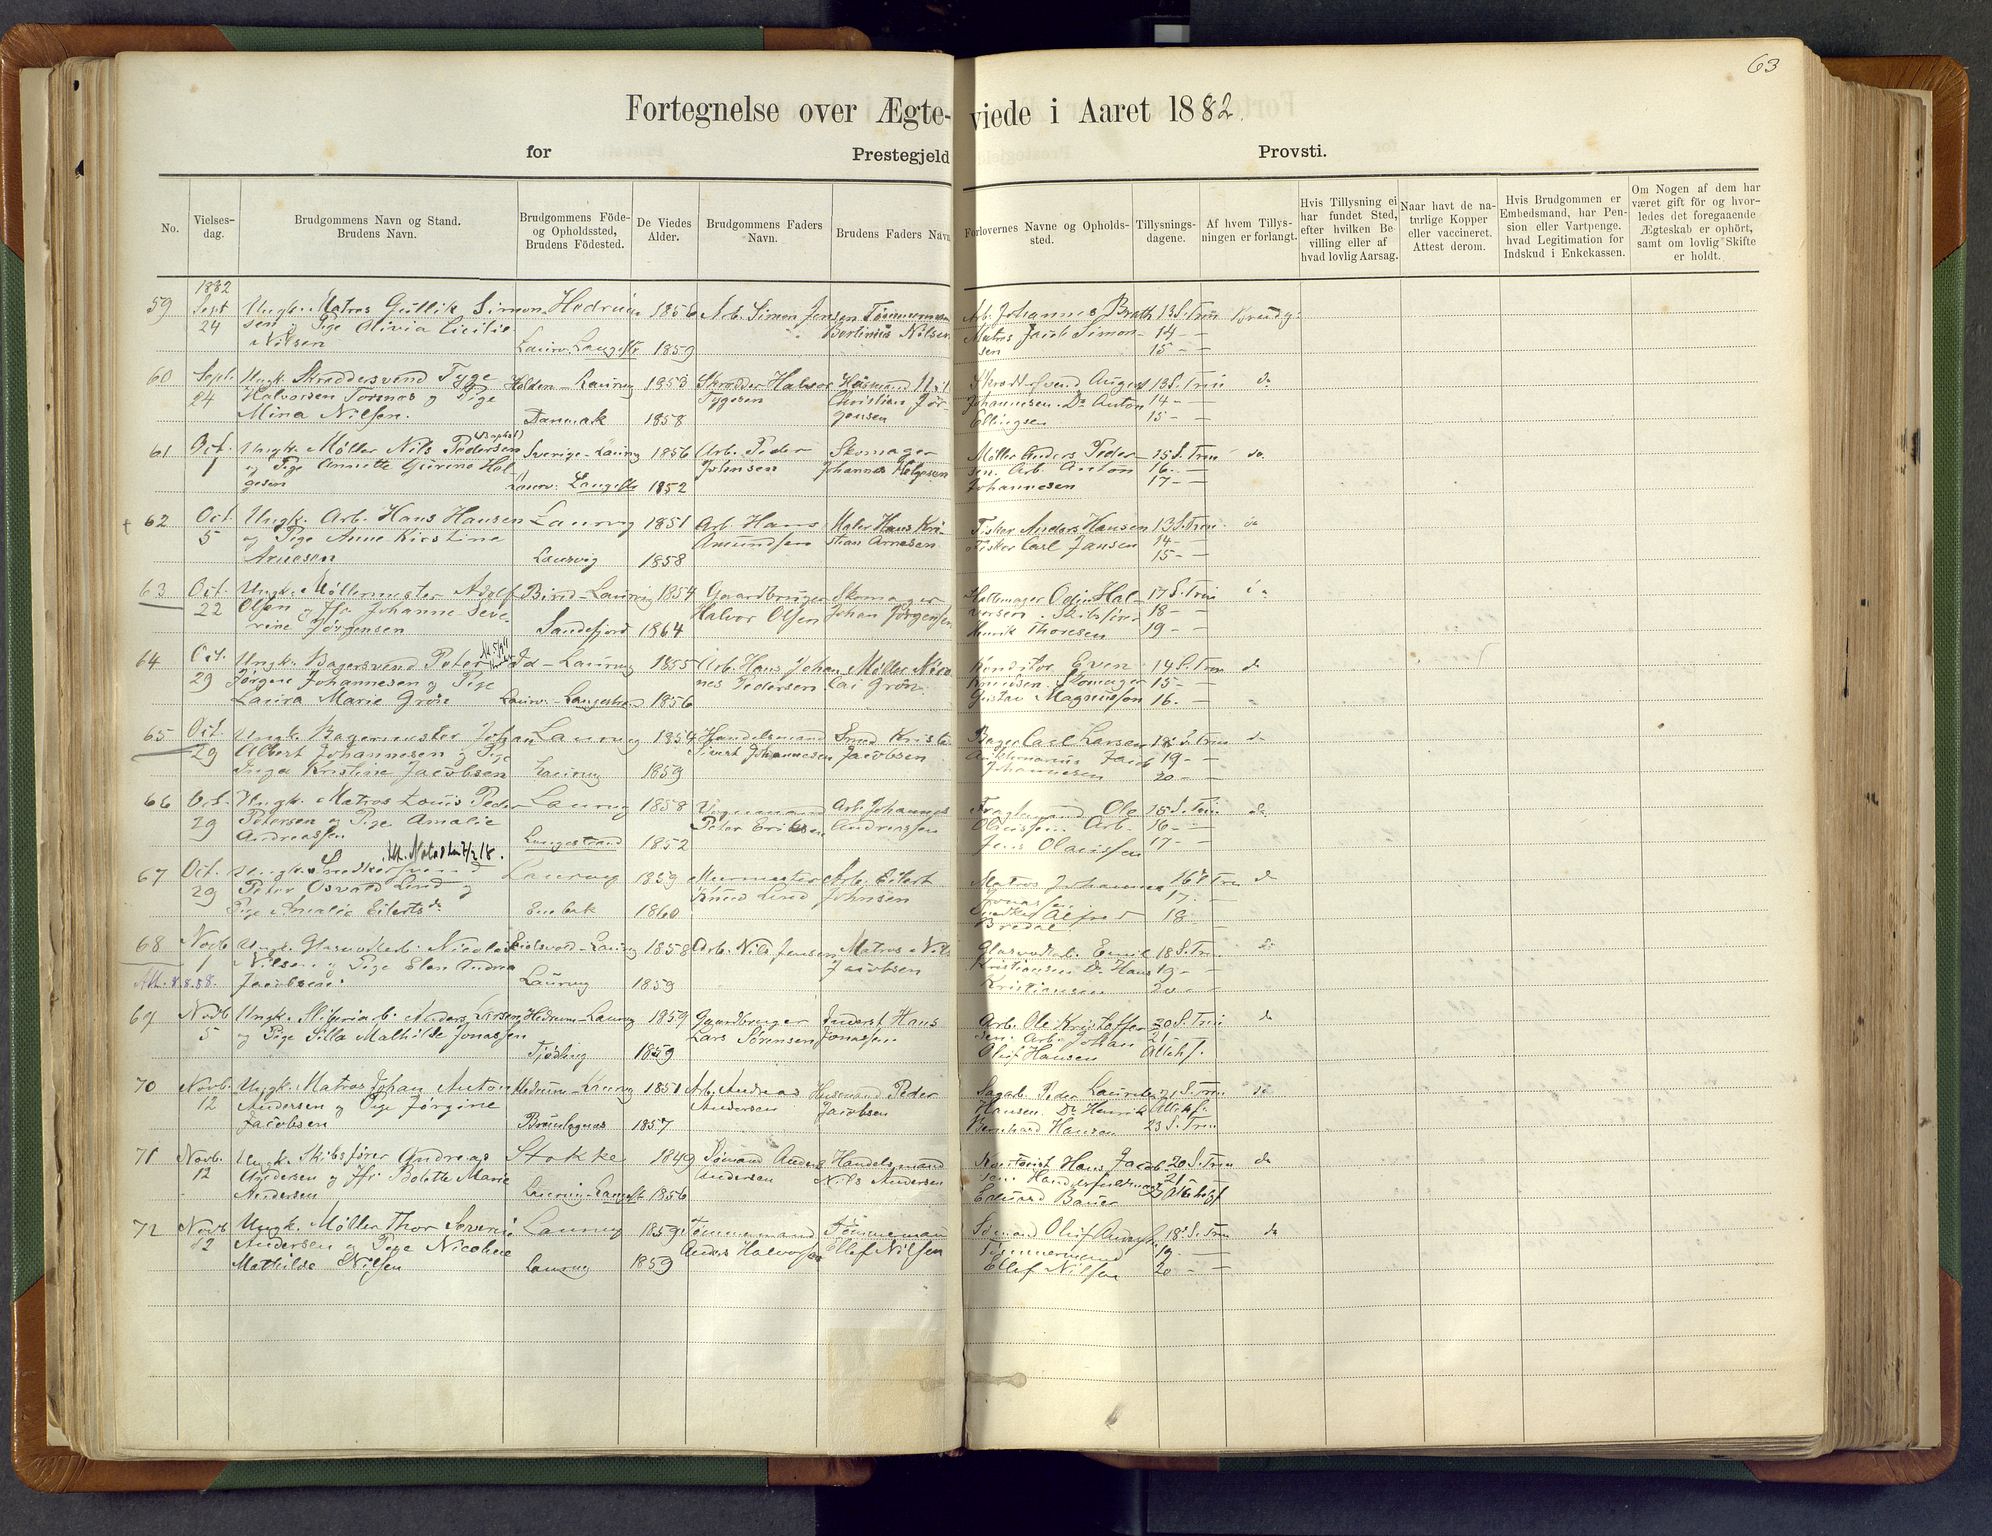 63
Fortegnelse over Ægteviede i Aaret 1882.
for Prestegjeld Provsti.
No.
Vielsesdag.
Brudgommens Navn og Stand.
Brudens Navn.
Brudgommens Föde-
og Opholdssted,
Brudens Födested.
De Viedes
Alder.
Brudgommens Faders
Navn.
Brudens Faders Navn
Forlovernes Navne og Opholds-
sted.
Tillysnings-
dagene.
Af hvem Tillys-
ningen er forlangt.
Hvis Tillysning ei
har fundet Sted,
efter hvilken Be-
villing eller af
hvad lovlig Aarsag.
Naar havt de na-
turlige Kopper
eller vaccineret.
Attest derom.
Hvis Brudgommen er
Embedsmand, har Pen-
sion eller Vartpenge,
hvad Legitimation for
Indskud i Enkekassen.
Om Nogen af dem har
været gift för og hvor-
ledes det foregaaende
Ægteskab er ophört,
samt om lovlig Skifte
er holdt.
1882
59 Sept 24 Ungk. Matros Gullik Simon- Hedrum 1856 Arb. Simon Jensen Tömmermand Arb. Johannes Brath 13 S. Trin Brudg.
sen og Pige Olivia Cecilie Bertinius Nilsen Matros Jacob Simon- 14 — —
Nilsen Laurv. Langestr 1859 sen 15 — —
60 Sept. 24 Ungk. Skræddersvend Tyge Holden - Laurvig 1853 Skrædder Halvor Husmand Skrædersvend August 13 S. Trin do
Halvorsen og Pige Tygesen Christian Jör- Johannesen. Do Anton 14 — —
Mina Nilsen. Danmark 1858 gensen Ellingsen 15 — —
61 Oct. 1 Ungk. Møller Nils Pedersen Sverige - Laurvig 1856 Arb. Peder Skomager Møller Anders Peder- 15 S. Trin do
og Pige Annette Gurine Hol- Johnsen Johannes Holgesen sen. Arb. Anton 16 — —
gesen Laurv. Langestr 1852 Johannesen 17 — —
62 Oct 5 Ungk. Arb. Hans Hansen Laurvig 1851 Arb. Hans Maler Hans Kri- Fisker Anders Hansen 13 S. Trin do
og Pige Anne Kirstine Amundsen stian Arnesen. Fisker Carl Jansen 14 — —
Arnesen Laurvig 1858 15 — —
63 Oct. 22 Ungk. Møllermester Adolf - Laurvig 1854 Gaardbruger Skomager Hattemager Odin Hal- 17 S. Trin do
Olsen og Jfr. Johanne Seve- Halvor Olsen Johan Jørgensen vorsen. Skibsfører 18 — —
rine Jørgensen Sandefjord 1864 Henrik Thoresen 19 — —
64 Oct. 29 Ungk. Bagersvend Peter Id - Laurvig 1855 Arb. Hans Johan- Møller Nico- Konditor Even 14 S. Trin do
Jørgen Johannesen og Pige nes Pedersen lai Grön Knudsen. Skomager 15 — —
Laura Marie Grön Laurv. - Langestrand 1856 Gustav Magnussen 16. — —
65 Oct. 29 Ungk. Bagermester Johan Laurvig 1854 Handelsmand Smed Krist. Bager Carl Larsen 18 S. Trin do
Albert Johannesen og Pige Sivert Johannesen Jacobsen Jacob 19 — —
Inga Kristine Jacobsen Laurvig 1859 Johannesen 20 — —
66 Oct. 29 Ungk. Matros Louis Peder Laurvig 1858 Vognmand Arb. Johannes Ole 15 S. Trin do
Petersen og Pige Amalie Peter Eriksen Andreassen Olaussen. Arb. 16 — —
Andreassen Langestrand 1852 Jens Olaussen 17 — —
67 Oct. 29 Ungk. Snedkersvend Laurvig 1859 Murmester Arb. Eilert Matros Johannes 16 S. Trin do
Peter Osvald Lind og Knud Lind Johnsen 17 —
Pige Amalie Eilerts d. Enebak 1860 Alfred Bredal 18 —
68 Novb 1 Ungk. Glasarbeb. Nicolai Eidsvold - Laurvig 1858 Arb. Nils Jensen Matros Nils Glasarbb. Emil 18 S. Trin do
Nilsen og Pige Elen Andrea Jacobsen Kristiansen Do Hans 19 — —
Att. 8.8.88. Jacobsen. Laurvig 1859 Kristiansen 20 — —
69 Novb 5 Ungk. Sliberiarb. Anders Larsen Hedrum - Laurvig 1859 Gaardbruger Inderst Hans Arb. Ole Kristoffer- 20 S. Trin do
og Pige Silla Mathilde Jonassen Lars Sörensen Jonassen sen. Arb. Johan 21 —
Tjødling 1859 Oluf Hansen Alleh f.
70 Novb. 12 Ungk. Matros Johan Anton Hedrum - Laurvig 1851 Arb. Andreas Husmand Peder Sagarb. Peder Lauritz 21 S. Trin do
Andersen og Pige Jörgine Andersen Jacobsen Hansen. Do Henrik Alleh f.
Jacobsen Brunlagnæs 1857 Bernhard Hansen 23 S. Trin
71 Novb. 12 Ungk. Skibsfører Andreas Stokke 1849 Sömand Anders Handelsmand Kontorist Hans Jacob- 20 S. Trin do
Andersen og Jfr. Bolette Marie Andersen Nils Andersen sen. Handelsfuldmægt 21 —
Andersen Laurvig - Langestr 1856 Edvard Bauer Alle helgf
72 Novb 12 Ungk. Møller Thor Severin Laurvig 1859 Tömmermand Tömmermand Sömand Oluf 18 S. Trin do
Andersen og Pige Nicoline Anders Halvorsen Ellef Nilsen Tömmermand 19 — —
Mathilde Nilsen Laurvig 1859 Ellef Nilsen 20 — —